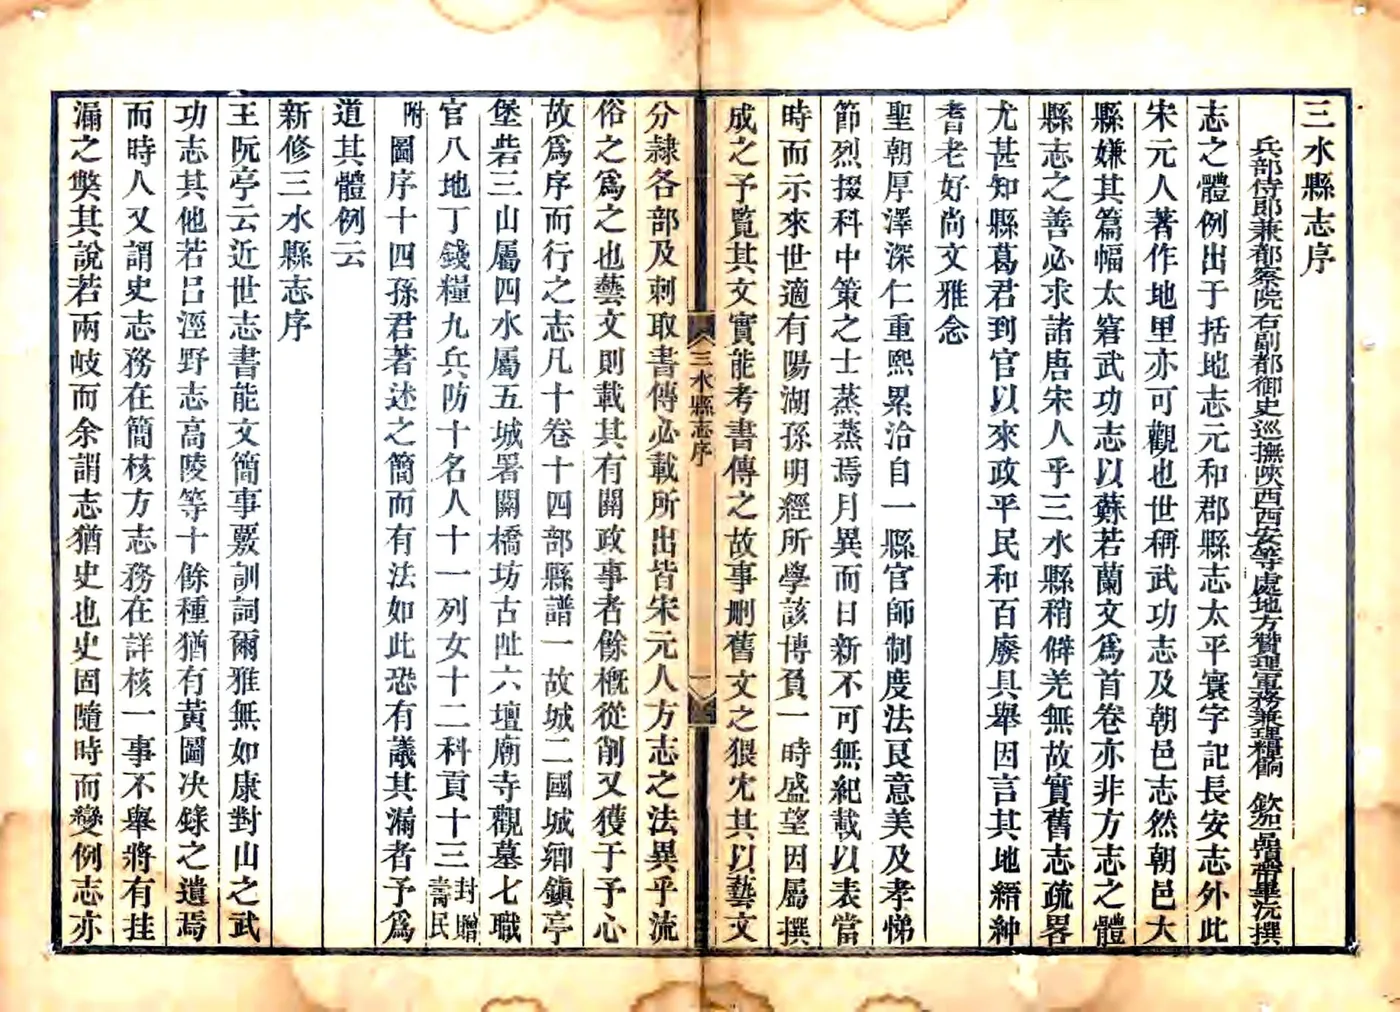 三水縣志序
兵部侍郎兼都察院右副都御史巡撫陜西西安等處地方贊理軍務兼理糧餉 欽一品畢沅撰
志之體例出于括地志元和郡縣志太平寰宇記長安志外此
宋元人著作地里亦可觀也世稱武功志及朝邑志然朝邑大
縣嫌其篇幅太窘武功志以蘇若蘭文爲首卷亦非方志之體
縣志之善必求諸唐宋人乎三水縣稍僻羌無故實舊志疏畧
尤甚知縣葛君到官以來政平民和百廢具舉因言其地縉紳
耆老好尚文雅念
聖朝厚澤深仁重熙累洽自一縣官師制度法良意美及孝悌
節烈掇科中策之士蒸蒸焉月異而日新不可無紀載以表當
時而示來世適有陽湖孫明經所學該博負一時盛望因屬撰
成之予覧其文實能考書傳之故事删舊文之猥尤其以藝文
三水縣志序
一
分隷各部及刺取書傳必載所出皆宋元人方志之法異乎流
俗之爲之也藝文則載其有關政事者餘概從削又獲于予心
故爲序而行之志凡十卷十四部縣譜一故城二國城鄉鎮亭
堡砦三山屬四水屬五城署關橋坊古阯六壇廟寺觀墓七職
官八地丁錢糧九兵防十名人十一列女十二科貢十三封贈壽民
附圖序十四孫君著述之簡而有法如此恐有議其漏者予爲
道其體例云
新修三水縣志序
王阮亭云近世志書能文簡事覈訓詞爾雅無如康對山之武
功志其他若呂涇野志高陵等十餘種猶有黃圖決錄之遺焉
而時人又謂史志務在簡核方志務在詳核一事不舉將有挂
漏之獘其說若兩岐而余謂志猶史也史固隨時而變例志亦